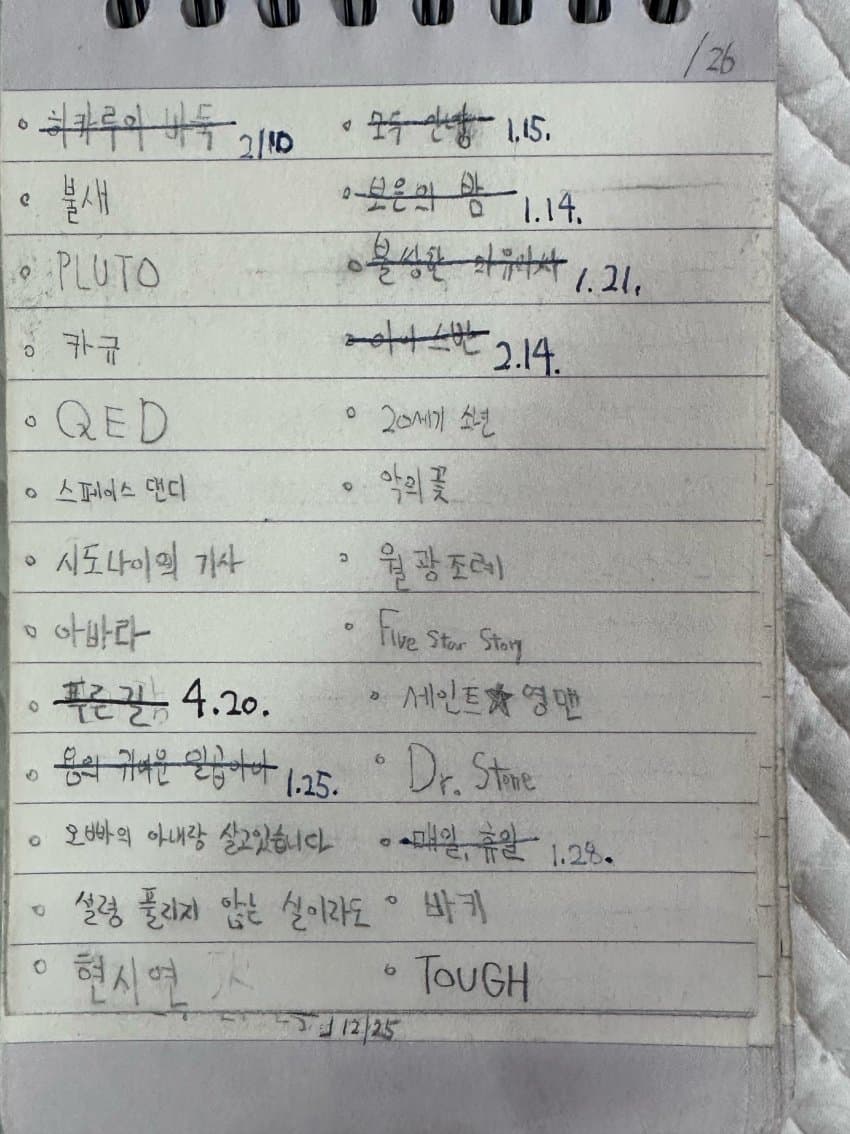 /26
히카루의 바둑 2/10
모두 안녕 1.15.
불새
보은의 밤 1.14.
PLUTO
불쌍한 1.21.
카규
2.14.
QED
20세기 소년
스페이스 댄디
악의 꽃
시도나이의 기사
월광조례
아바라
Five Star Story
푸른 길 4.20.
세인트★영맨
용의 귀여운 일곱아이 1.25.
Dr. Stone
오빠의 아내랑 살고있습니다
매일, 휴일 1.28.
설령 풀리지 않는 실이라도
바키
현시연
TOUGH
12/25